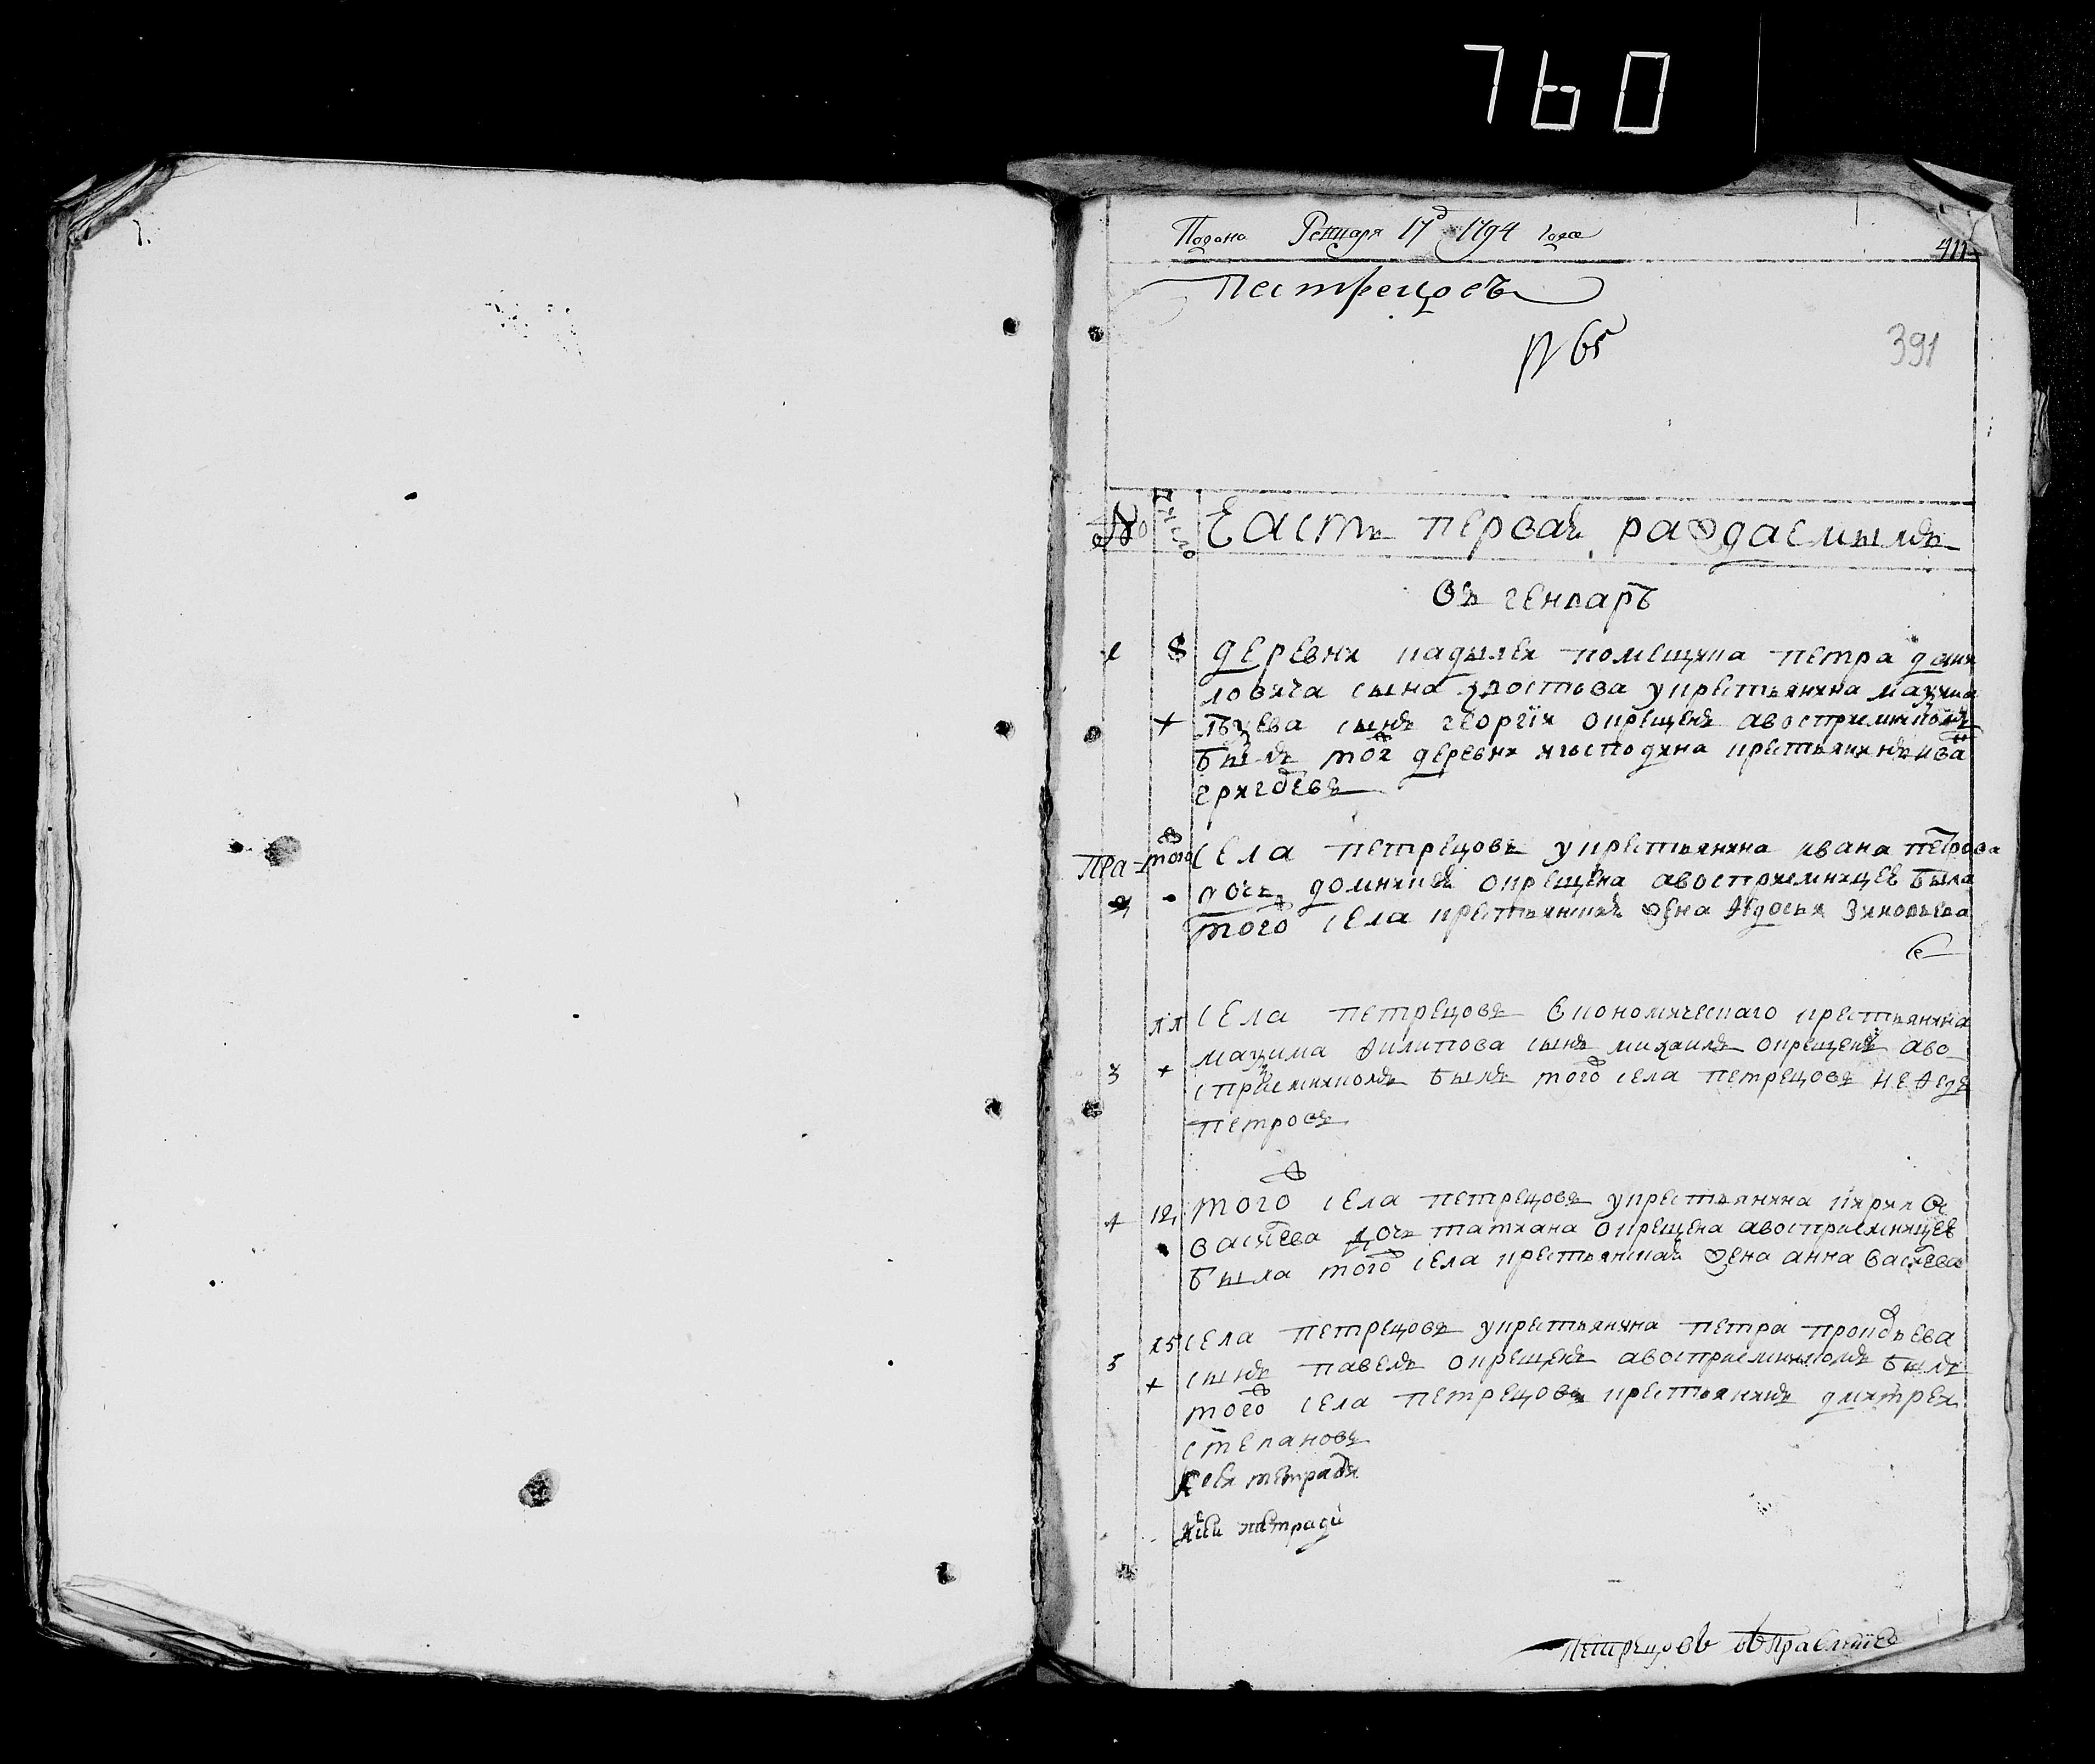 760
Подана Генваря 17д 1794 года
411
Петрецовъ
N 65
391
№ число Часть первая раждаемымъ
въ генварѣ
1 8 деревни кадылей помещика петра дани
ловича сына хвостова укрестьянина маѯима
сынъ георгїи окрещенъ авосприемникомъ
былъ той деревни игосподина крестьянинъ ива
того села петрецовъ укрестьянина ивана петрова
2 дочь домникия окрещена авосприемницеѣ была
того села крестьянская жена ѳедосья зиновьева
11 села петрецовъ економическаго крестьянина
3 маѯима филипова сынъ михаилъ окрещенъ аво
сприемникомъ былъ того села петрецовъ неѳедъ
петровъ
4 12 того села петрецовъ укрестьянина кирила
васильева дочь татиана окрещена авосприемницеѣ
была того села крестьянская жена анна васильева
15 села петрецовъ укрестьянина петра прокофьева
5 сынъ павелъ окрещенъ авосприемникомъ былъ
того села петрецовъ крестьянинъ дмитреи
степановъ
тетради
тетради
Петрецовъ